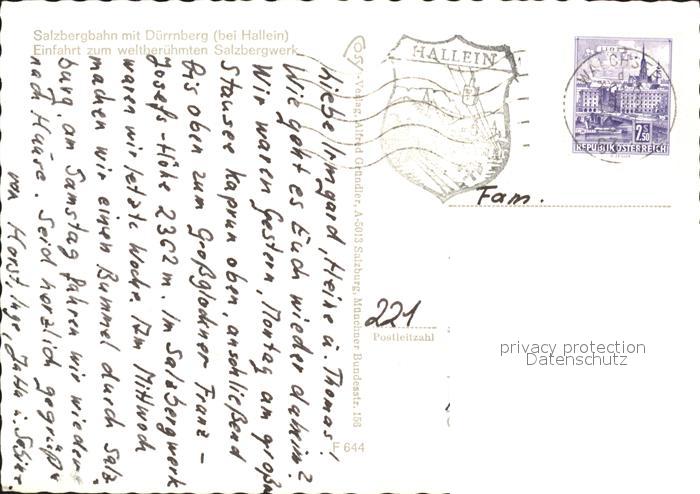 Salzbergbahn mit Dürrnberg (bei Hallein)
Einfahrt zum weltberühmten Salzbergwerk
Liebe Irmgard, Heinz u. Thomas!
Wie geht es Euch wieder daheim?
Wir waren Gestern, Montag am großen
Stausee Kaprun oben, anschließend
bis oben zum Großglockner Franz-
Josefs-Höhe 2362 m. Im Salzbergwerk
waren wir letzte Woche. Am Mittwoch
machen wir einen Bummel durch Salz
burg, am Samstag fahren wir wieder
nach Hause. Seid herzlich gegrüßt
von Horst, Inge, Jutta u.
Verlag Alfred Gründler, A-5013 Salzburg, Münchner Bundesstr. 156
F 644
HALLEIN
LINZ
2.50
S
REPUBLIK ÖSTERREICH
Fam.
221
Postleitzahl
privacy protection
Datenschutz